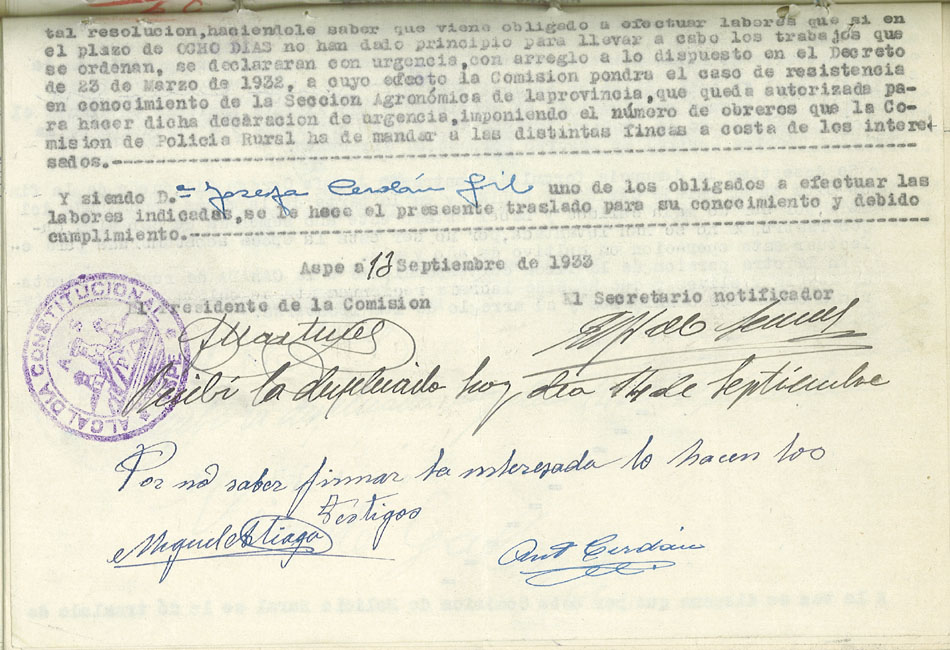 tal resolucion,haciendole saber que viene obligado a efectuar labores que si en
el plazo de OCHO DIAS no han dado principio para llevar a cabo los trabajos que
se ordenan, se declararan con urgencia,con arreglo a lo dispuesto en el Decreto
de 23 de Marzo de 1932, a cuyo efecto la Comision pondra el caso de resistencia
en conocimiento de la Seccion Agronómica de laprovincia,que queda autorizada pa-
ra hacer dicha decäracion de urgencia,imponiendo el número de obreros que la Co-
mision de Policia Rural ha de mandar a las distintas fincas a costa de los intere-
sados.-
Y siendo D.ª Josefa Cerdán Gil uno de los obligados a efectuar las
labores indicadas,se le hace el presente traslado para su conocimiento y debido
cumplimiento.-
Aspe a 13 Septiembre de 1933
El Presidente de la Comision El Secretario notificador
ALCALDIA CONSTITUCIONAL ASPE
Recibí la duplicado hoy dia 14 de Septiembre
Por no saber firmar la interesada lo hacen los
Testigos
Miguel Ant Cerdán